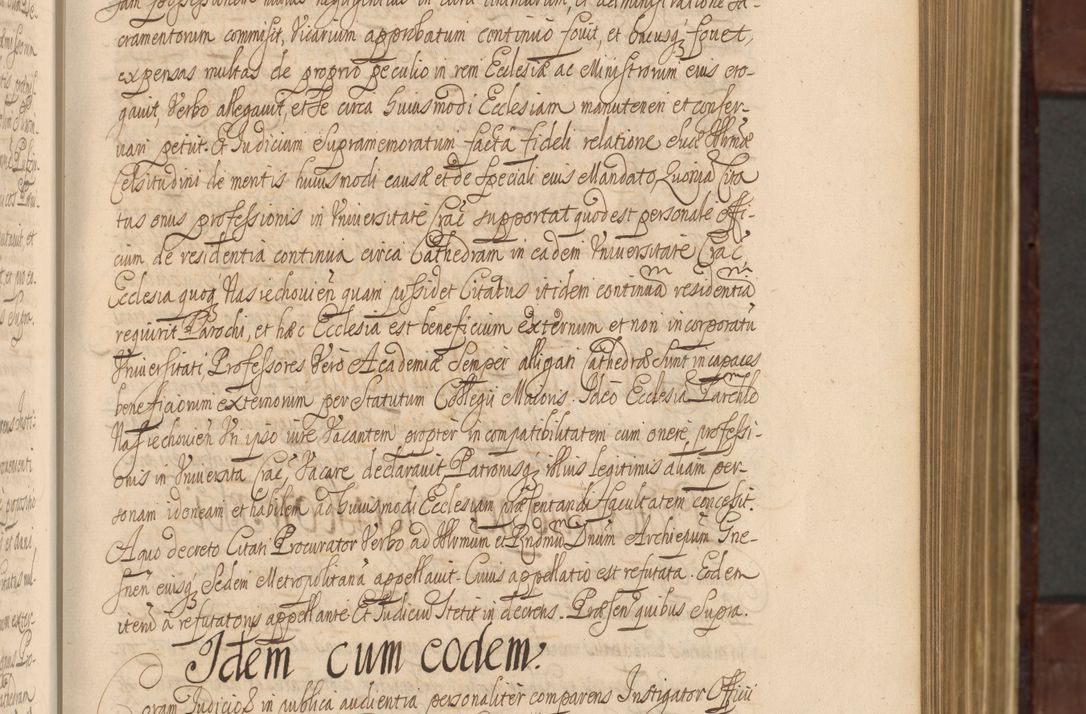 cramentorum commisit, Vicarium approbatum continuo fovit, et hucusq fovet,
expensas multas de proprio peculio in rem Ecclesiæ ac Ministrorum eius ero-
gavit, Verbo allegavit, et se circa huiusmodi Ecclesiam manuteneri et conser-
vari petiit. Et Judicium supramemoratum facta fideli relatione eidem Illmæ
Celsitudini de mentis huiusmodi causæ et de speciali eius Mandato, Quoniam Cita
tus onus professionis in Universitate Crac supportat quod est personale offi-
cium de residentia continua circa Cathedram in eadem Universitate Crac
Ecclesia quoq Nasiechovien quam possidet Citatus itidem continuam residentiam
requirit Parochi, et hæc Ecclesia est beneficium externum et non incorporatu
Universitati, Professores Vero Academiæ semper alligati Cathedræ sunt incapaces
beneficiorum externorum per Statutum Collegii Maioris. Ideo Ecclesiã Parchle
Nasiechovien Un ipso iure Vacantem propter incompatibilitatem cum onere professi-
onis in Universita Crac Vacare declaravit Patronisq illius legitimis aliam per-
sonam idoneam et habilem ad huiusmodi Ecclesiam præsentandi facultatem concessit.
A quo decreto Citati Procurator Verbo ad Illrmum et Rndmu Dnum Archiepum Gne-
snen eiusq Sedem Metropolitana appellavit. Cuius appellatio est refutata. Eodem
iterũ a refutatoris appellante Et Judiciu stetit in decreto. Præsen quibus Supra.
Idem cum eodem.
oram Judicio in publica audientia personaliter comparens Instigator Officii